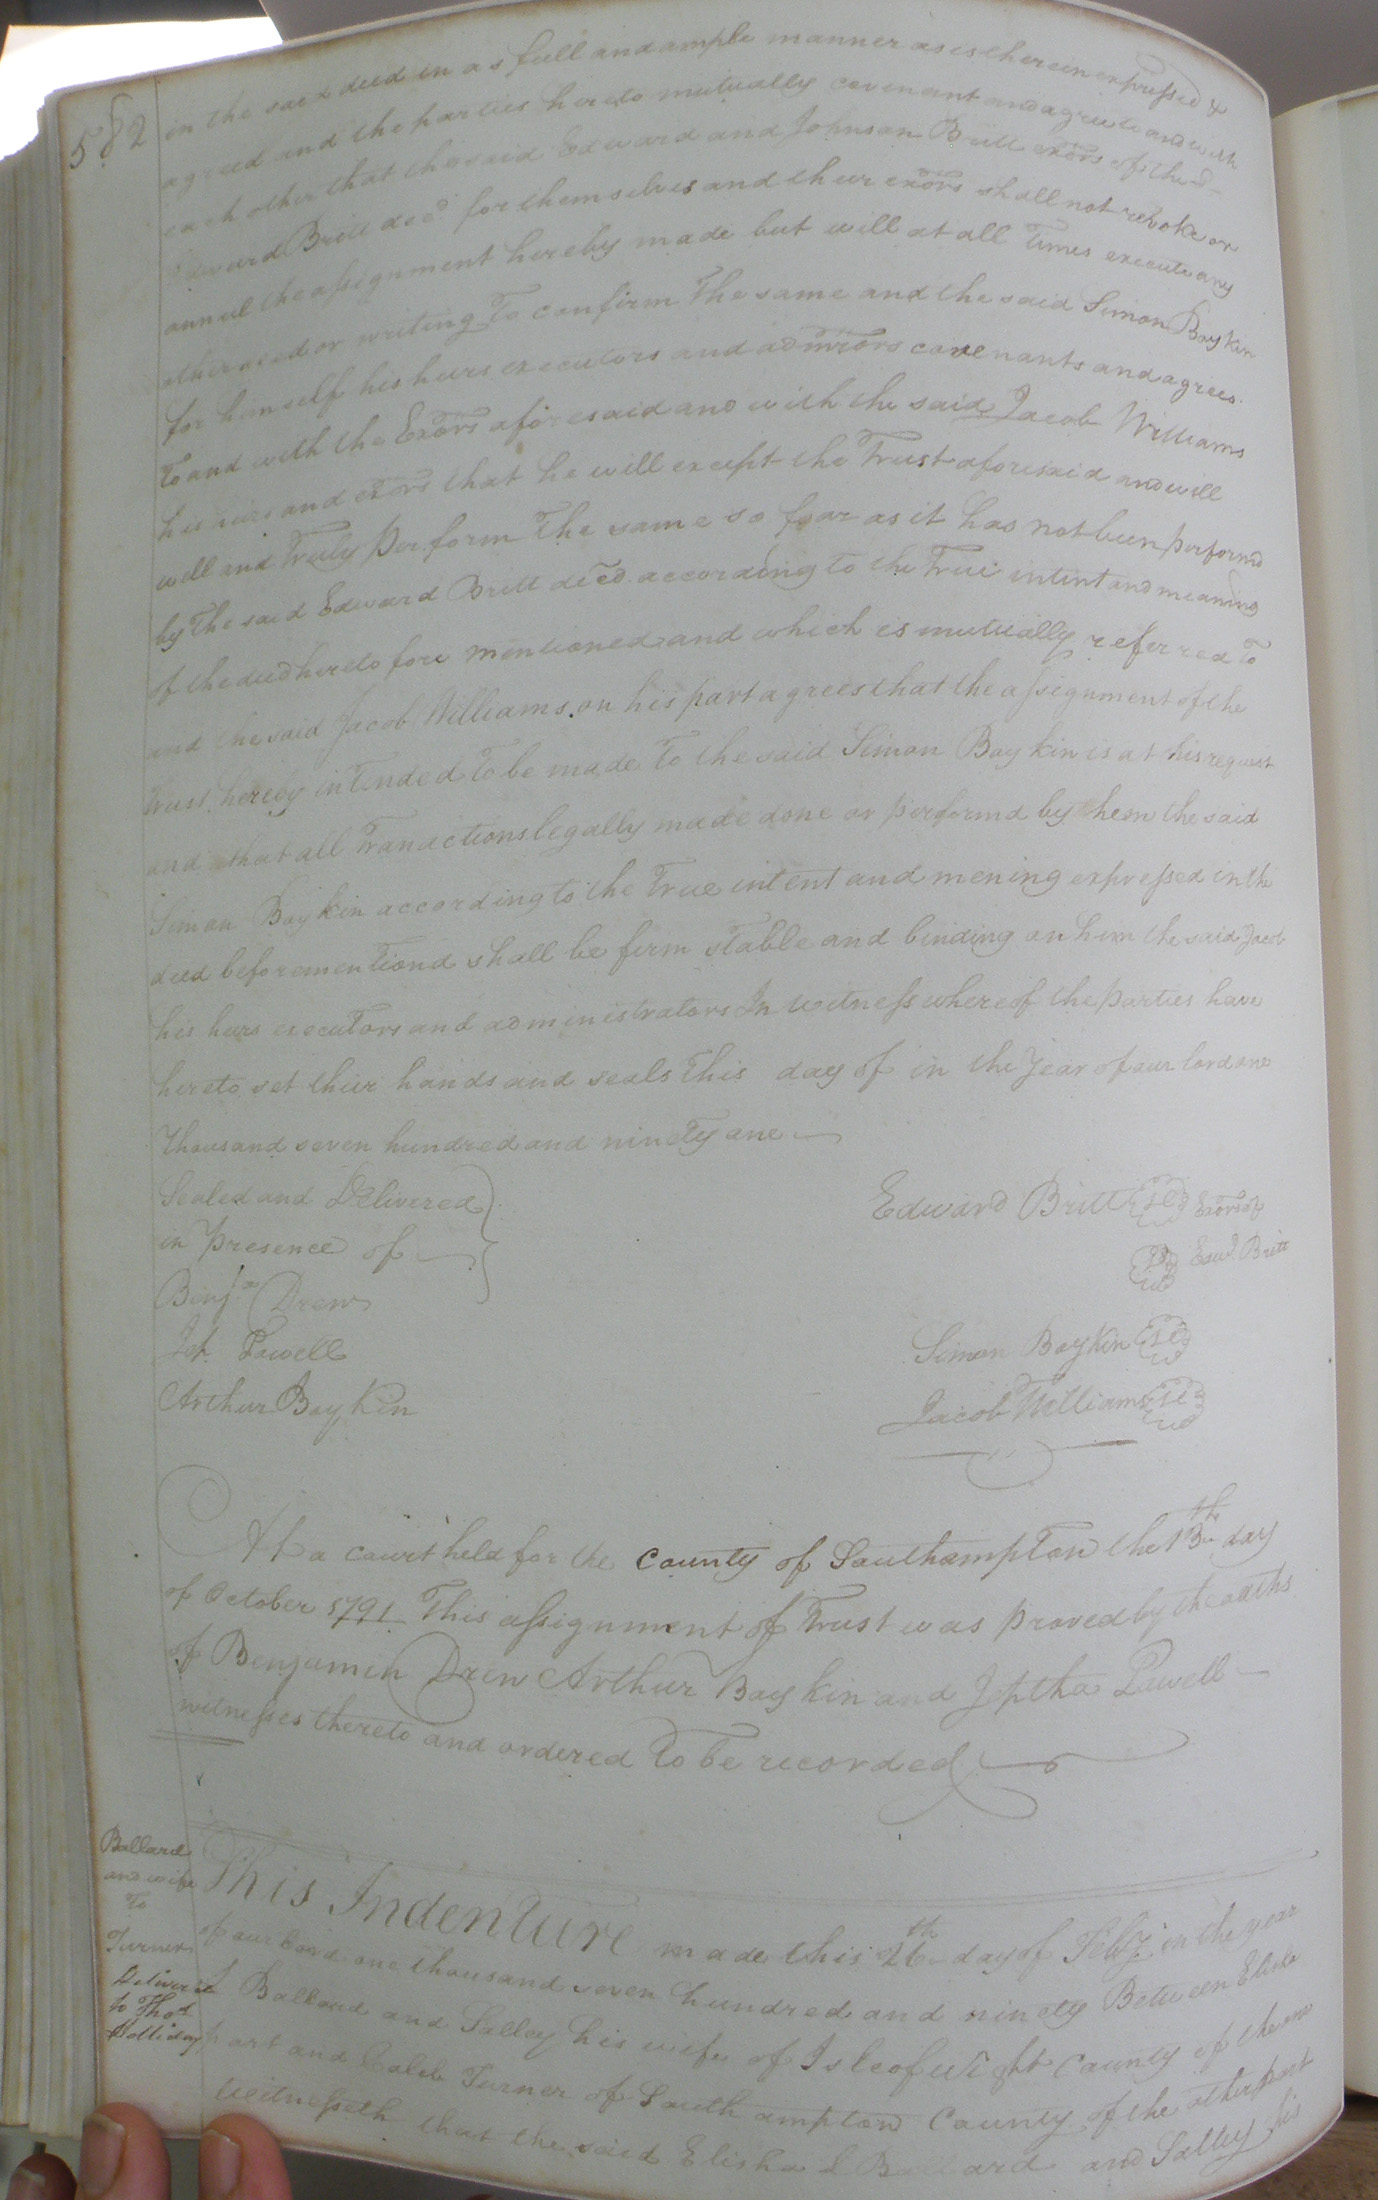 582
in the said deed in as full and ample manner as is therein expressed &
agreed and the parties hereto mutually covenant and agree to and with
each other that the said Edward and Johnson Britt exōrs of the sd
Edward Britt decd. for themselves and their exōrs shall not revoke or
annul the assignment hereby made but will at all Times execute any
other deed or writing To confirm The same and the said Simon Boykin
for himself his heirs executors and admrōrs covenants and agrees
To and with the Exōrs aforesaid and with the said Jacob Williams
his heirs and exōrs that he will except the Trust aforesaid and will
well and Truly perform The same so far as it has not been performd
by The said Edward Britt decd. according to the True intent and meaning
of the deed hereto fore mentioned and which is mutually referred To
and the said Jacob Williams on his part agrees that the assignment of the
trust hereby inTended To be made To the said Simon Boykin is at his request
and that all Tranactions legally made done or performd by hem the said
Simon Boykin according to the True intent and mening expressed in the
deed beforementiond shall be firm stable and binding on him the said Jacob
his heirs executors and administrators In witness whereof the parties have
hereto set their hands and seals This day of in the Year of our lord one
Thousand seven hundred and ninety one
Sealed and Delivered
in presence of
Benja. Drew
Jep. Powell
Arthur Boykin
Edward Britt Exōrs of
Edwd. Britt
Simon Boykin
Jacob Williams
At a court held for the County of Southampton the 13th day
of October 1791 This assignment of Trust was proved by the oaths
of Benjamin Drew Arthur Boykin and Jeptha Powell
witnesses thereto and ordered To be recorded
Ballard
and wife
To
Turner
Deliver'd
to Thos.
Holliday
This Indenture made this 26th day of Feby. in the year
of our Lord one thousand seven hundred and ninety Between Elisha
L Ballard and Salley his wife of Isle of Wight County of the one
part and Caleb Turner of Southampton County of the other part
Witnesseth that the said Elisha L Ballard and Salley his